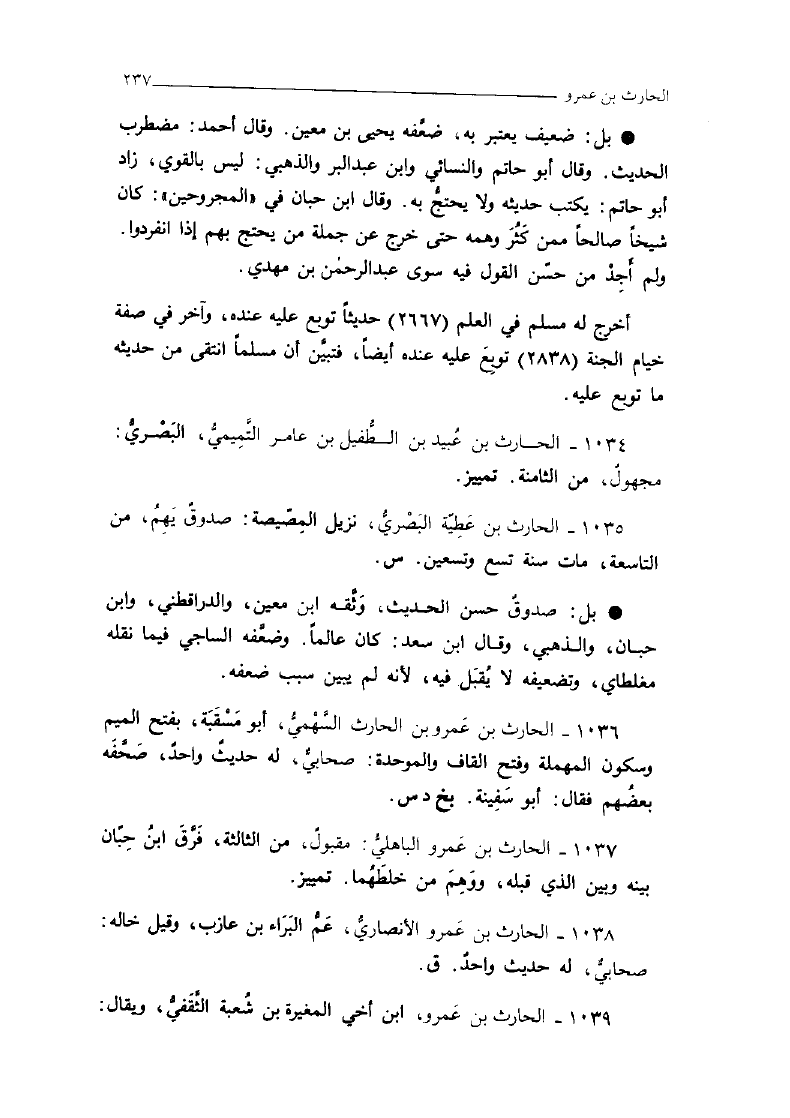 الحارث بن عمرو ــــــــــ ٢٣٧
● بل: ضعيف يعتبر به، ضعَّفه يحيى بن معين. وقال أحمد: مضطرب
الحديث. وقال أبو حاتم والنسائي وابن عبدالبر والذهبي: ليس بالقوي، زاد
أبو حاتم: يكتب حديثه ولا يحتجُّ به. وقال ابن حبان في «المجروحين»: كان
شيخاً صالحاً ممن كَثُرَ وهمه حتى خرج عن جملة من يحتج بهم إذا انفردوا.
ولم أَجِدْ من حسّن القول فيه سوى عبدالرحمٰن بن مهدي.
أخرج له مسلم في العلم (٢٦٦٧) حديثاً توبع عليه عنده، وآخر في صفة
خيام الجنة (٢٨٣٨) توبِعَ عليه عنده أيضاً، فتبيَّن أن مسلماً انتقى من حديثه
ما توبع عليه.
١٠٣٤ ـ الحارث بن عُبيد بن الطُّفيل بن عامر التَّمِيميُّ، البَصْريُّ:
مجهولٌ، من الثامنة. تمييز.
١٠٣٥ ـ الحارث بن عَطِيّة البَصْريُّ، نزيل المِصّيصة: صدوقٌ يَهِمُ، من
التاسعة، مات سنة تسع وتسعين. س.
● بل: صدوقٌ حسن الحديث، وَثَّقه ابن معين، والدراقطني، وابن
حبان، والذهبي، وقال ابن سعد: كان عالماً. وضعَّفه الساجي فيما نقله
مغلطاي، وتضعيفه لا يُقبَل فيه، لأنه لم يبين سبب ضعفه.
١٠٣٦ ـ الحارث بن عَمرو بن الحارث السَّهْميُّ، أبو مَسْقَبَة، بفتح الميم
وسكون المهملة وفتح القاف والموحدة: صحابيٌّ، له حديثٌ واحدٌ، صَحَّفَه
بعضُهم فقال: أبو سَفِينة. بخ د س.
١٠٣٧ ـ الحارث بن عَمرو الباهليُّ: مقبولٌ، من الثالثة، فَرَّقَ ابنُ حِبّان
بينه وبين الذي قبله، ووَهِمَ من خلطَهُما. تمييز.
١٠٣٨ ـ الحارث بن عَمرو الأنصاريُّ، عَمُّ البَرَاء بن عازب، وقيل خاله:
صحابيٌّ، له حديث واحدٌ. ق.
١٠٣٩ ـ الحارث بن عَمرو، ابن أخي المغيرة بن شُعبة الثَّقَفيُّ، ويقال: